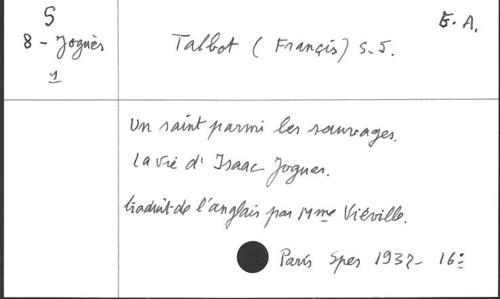 S
8 - Jogues
1
Talbot ( Françis) S.J.
E. A.
Un saint parmi les sauvages.
La vie d'Isaac Jogues.
traduit de l'anglais par Mme Viéville.
Paris Spes 1937 - 16º